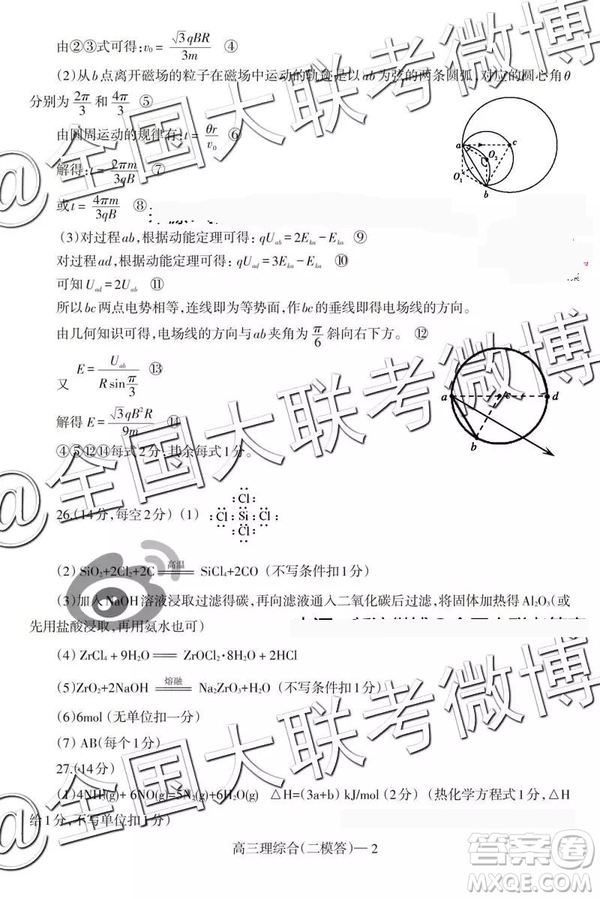 由②③式可得:v₀= √3qBR/3m ④
(2)从b点离开磁场的粒子在磁场中运动的轨迹是以ab为弦的两条圆弧,对应的圆心角θ
分别为 2π/3 和 4π/3 ⑤
由圆周运动的规律有:t= θr/v₀ ⑥
解得:t= 2πm/3qB ⑦
或t= 4πm/3qB ⑧.
(3)对过程ab,根据动能定理可得:qU_ab=2E_k0−E_k0 ⑨
对过程ad,根据动能定理可得:qU_ad=3E_k0−E_k0 ⑩
可知U_ad=2U_ab ⑪
所以bc两点电势相等,连线即为等势面,作bc的垂线即得电场线的方向。
由几何知识可得,电场线的方向与ab夹角为 π/6 斜向右下方。 ⑫
又 E= U_ab/(R sin π/3) ⑬
解得E= √3qB²R/9m ⑭
④⑤⑫⑭每式2分,其余每式1分。
a c O₂ O₁ b
a c d b
26.(14分,每空2分)(1) Cl Cl Si Cl Cl
(2) SiO₂+2Cl₂+2C 高温 SiCl₄+2CO (不写条件扣1分)
(3)加入NaOH溶液浸取过滤得碳,再向滤液通入二氧化碳后过滤,将固体加热得Al₂O₃(或
先用盐酸浸取,再用氨水也可)
(4) ZrCl₄ + 9H₂O = ZrOCl₂·8H₂O + 2HCl
(5)ZrO₂+2NaOH 熔融 Na₂ZrO₃+H₂O (不写条件扣1分)
(6)6mol (无单位扣一分)
(7) AB(每个1分)
27.(14分)
(1)4NH₃(g)+ 6NO(g)=5N₂(g)+6H₂O(g) △H=(3a+b) kJ/mol (2分) (热化学方程式1分, △H
给1分,不写单位扣1分)
高三理综合(二模答)— 2
@全国大联考微博
@全国大联考微博
@全国大联考微博
答案圈
MXQE.COM